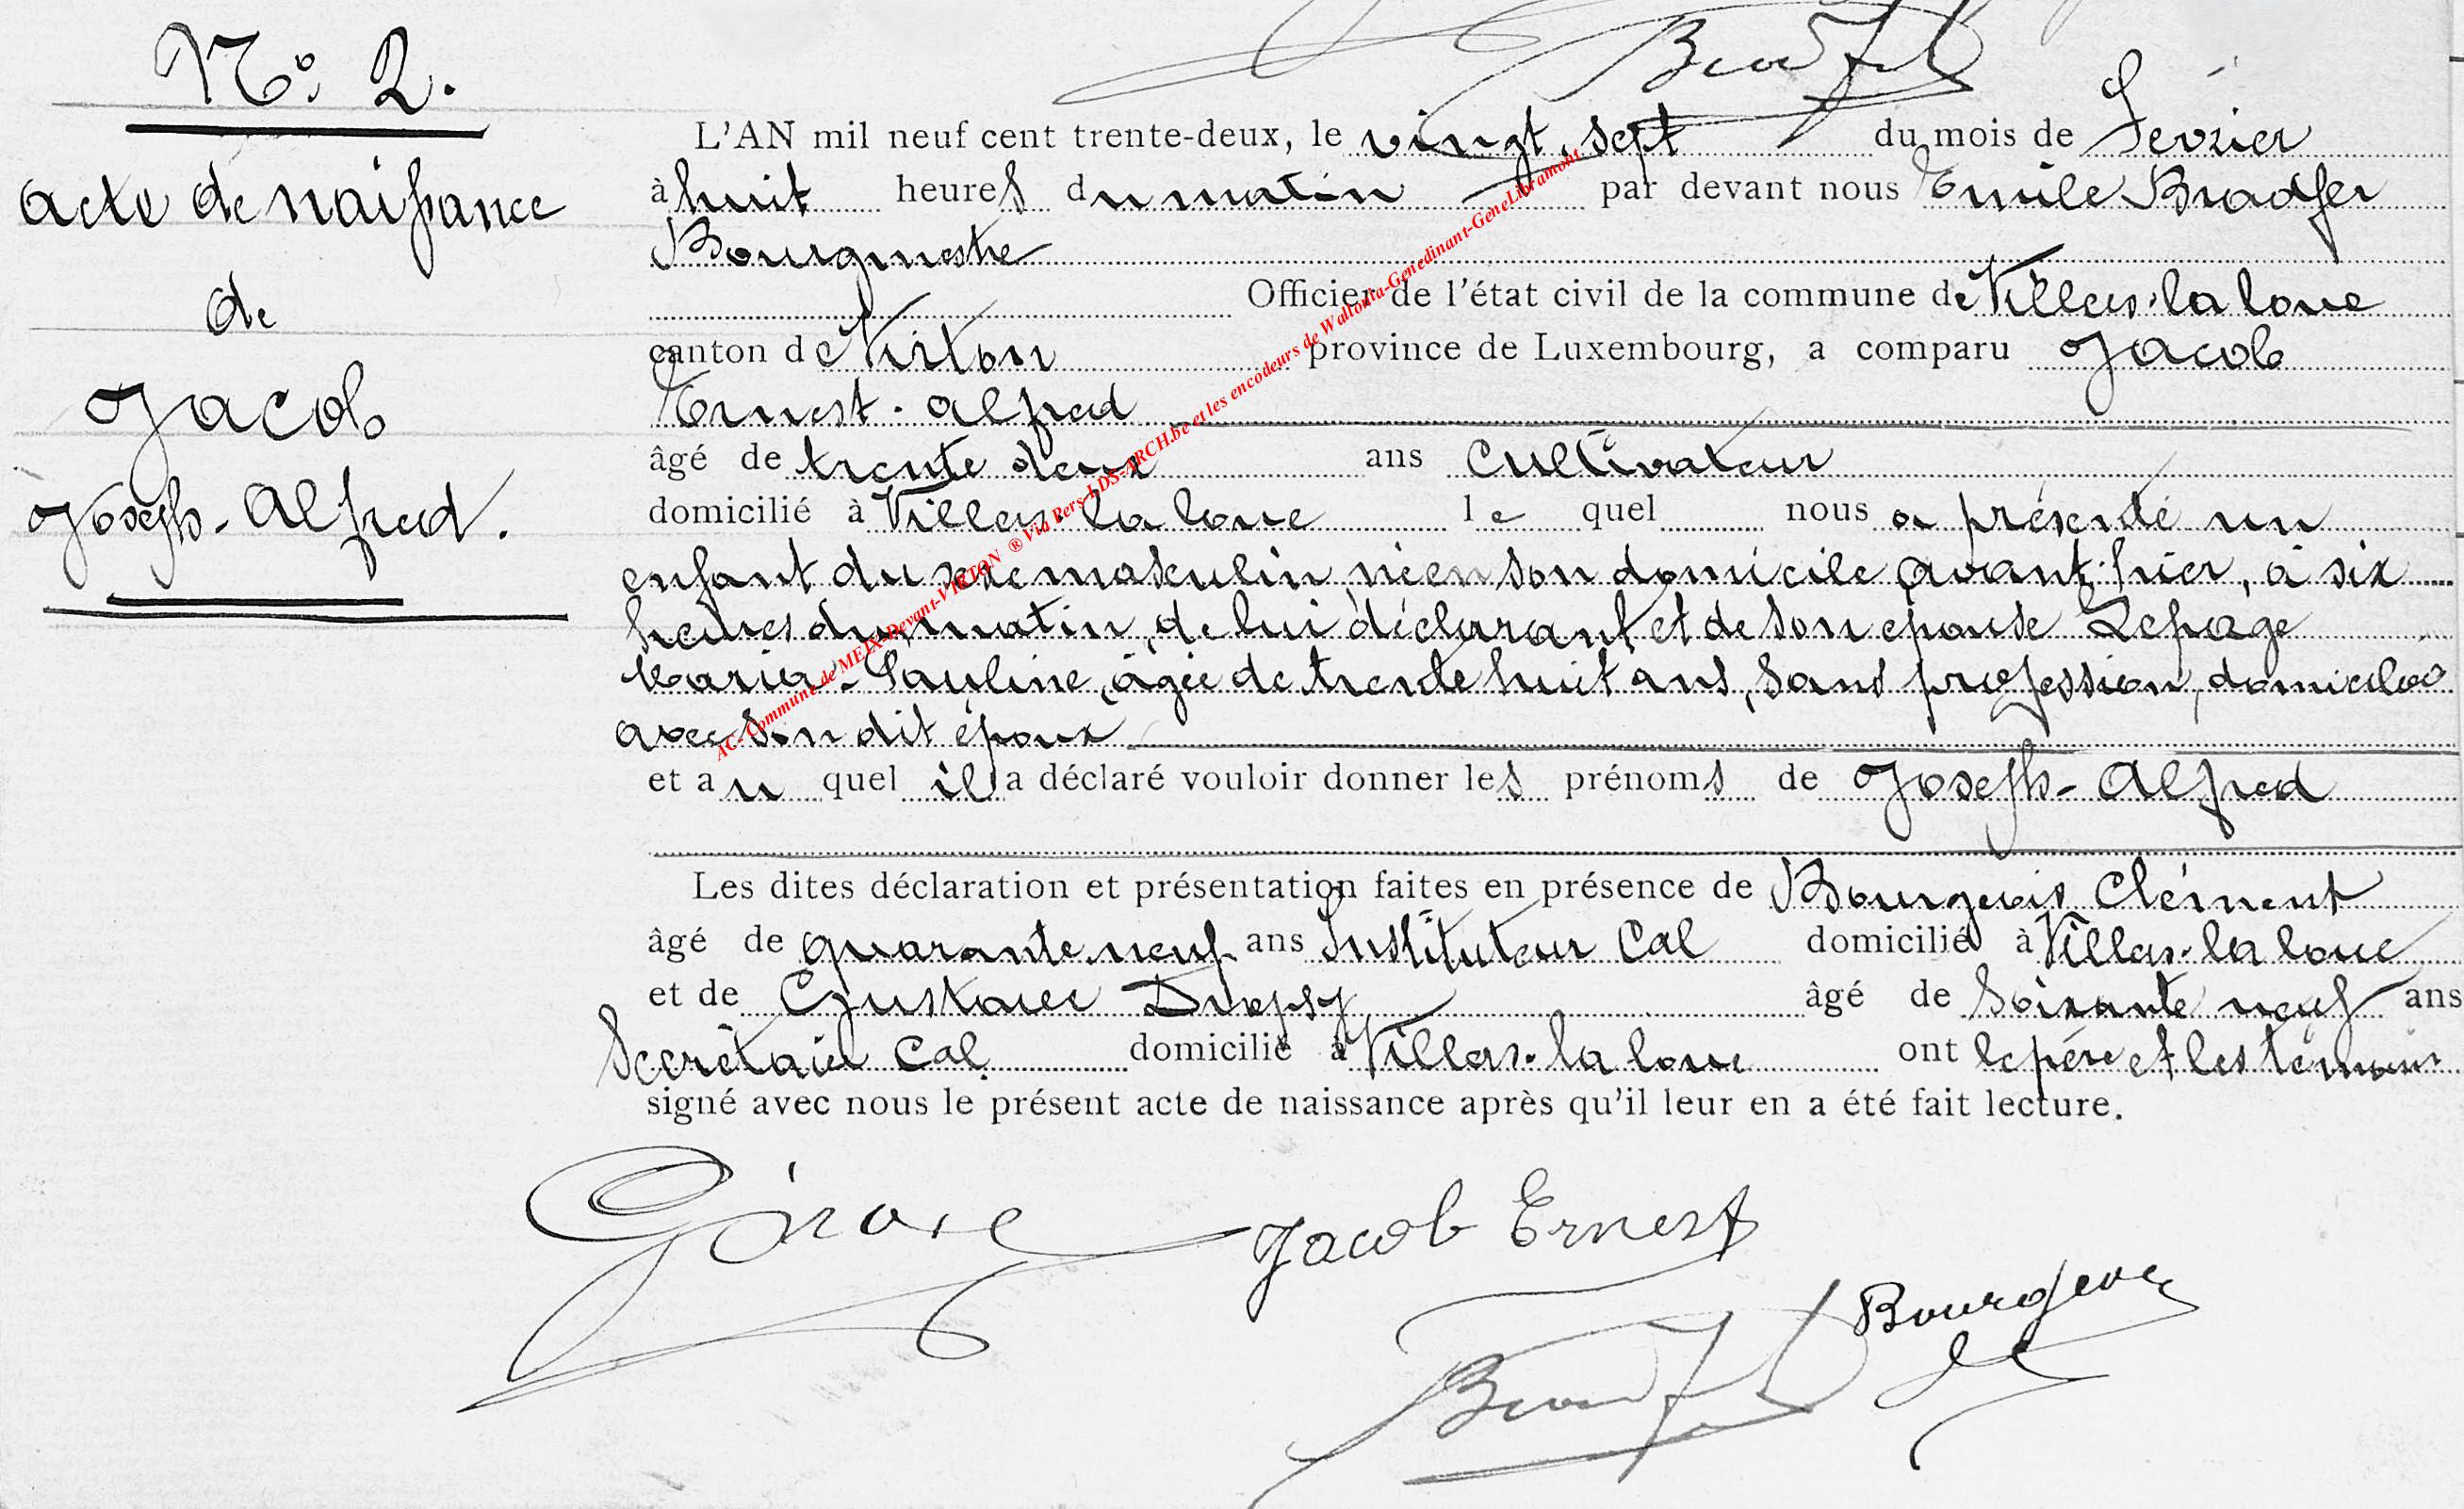 N° 2.
acte de naissance
de
Jacob
Joseph-Alfred.
L'AN mil neuf cent trente-deux, le vingt-sept du mois de Fevrier
à huit heures du matin par devant nous Emile Bradfer
Bourgmestre
Officier de l'état civil de la commune de Villers-la loue
canton de Virton province de Luxembourg, a comparu Jacob
Ernest-Alfred
âgé de trente deux ans cultivateur
domicilié à Villers-la loue le quel nous a présenté un
enfant du sexe masculin, né en son domicile avant-hier, à six
heures du matin, de lui déclarant et de son épouse Lepage
Maria-Pauline, âgée de trente huit ans, sans profession, domiciliée
avec son dit époux
et au quel il a déclaré vouloir donner les prénoms de Joseph-Alfred
Les dites déclaration et présentation faites en présence de Bourgeois Clément
âgé de quarante-neuf ans Instituteur Cal domicilié à Villers-la loue
et de Gustave âgé de soixante neuf ans
Secrétaire Cal domicilié à Villers-la loue ont le père et les témoins
signé avec nous le présent acte de naissance après qu'il leur en a été fait lecture.
Jacob Ernest
Bourgeois
Bradfer
AC- Commune de MEIX-Devant-VIRTON ® Via Pers-LDS-ARCH.be et les encodeurs de Wallonia-Genedinant-GeneLibramont